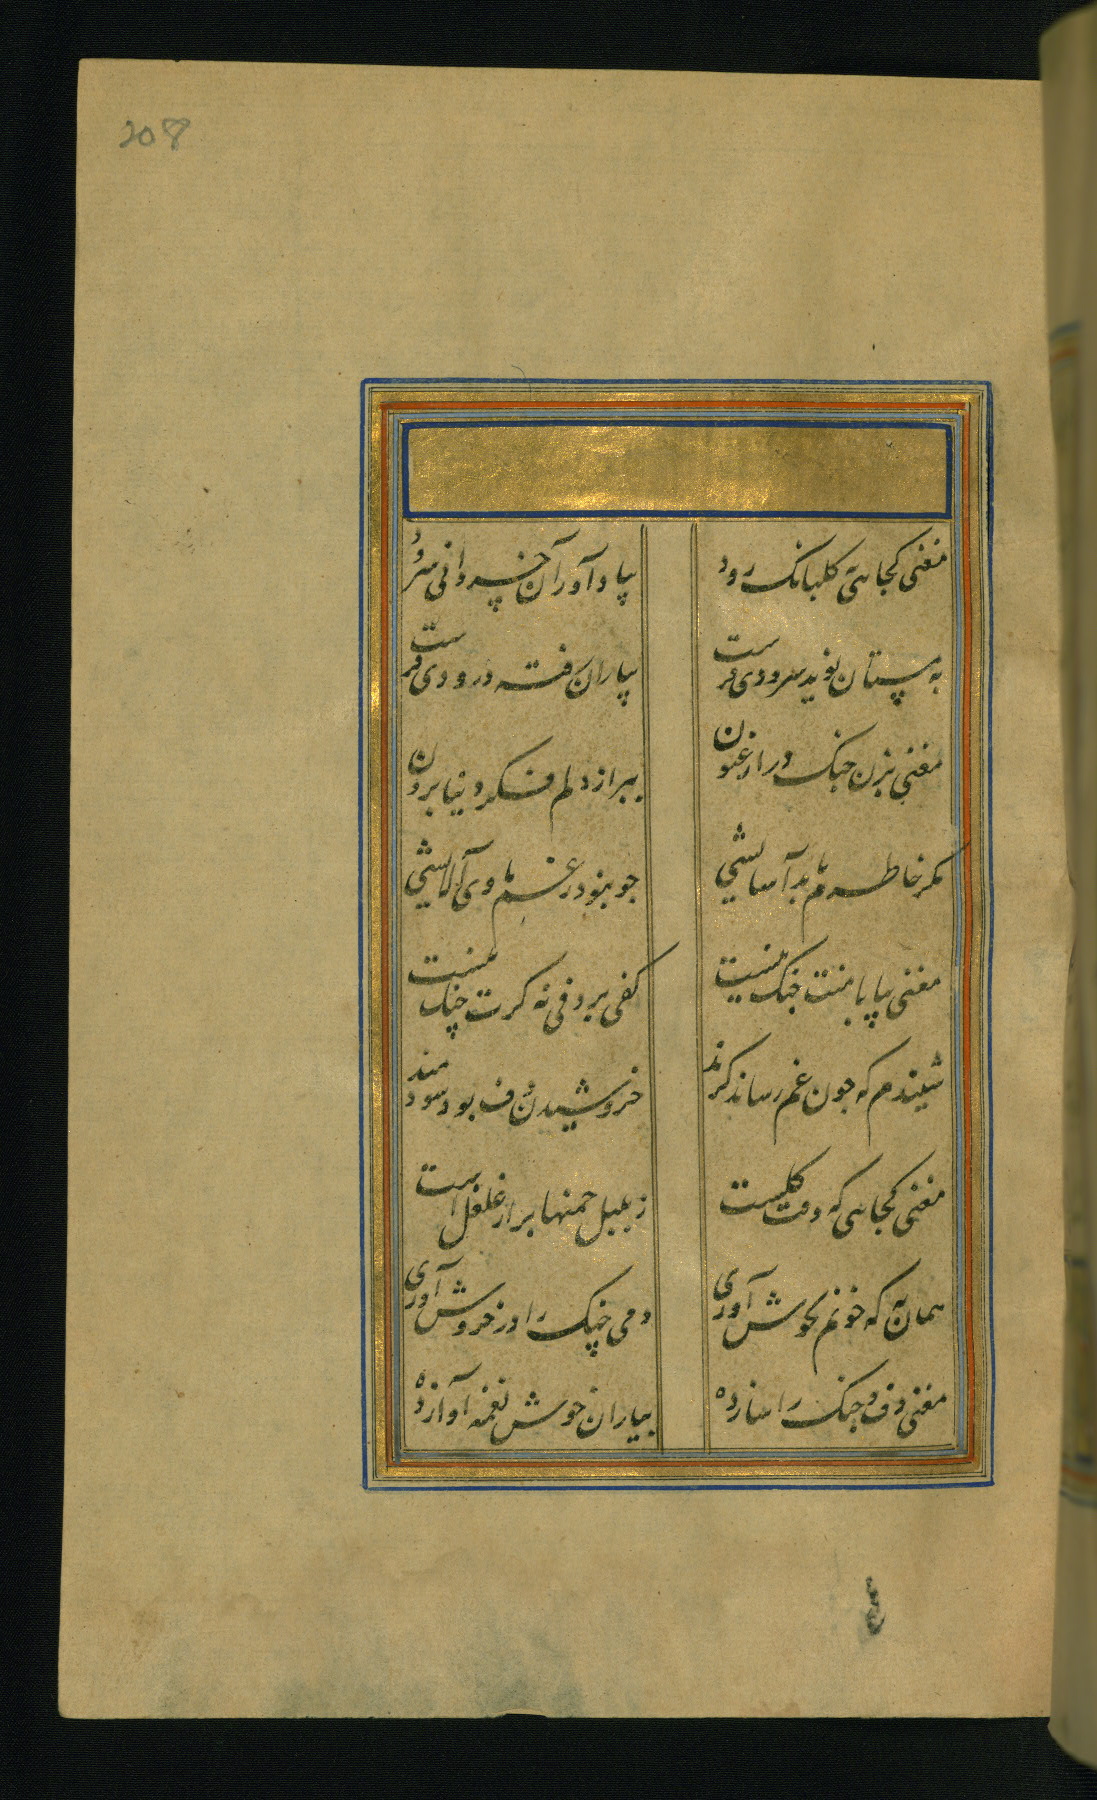 208
مغنی کجایی کلبانک رود
بیاد آور آن خسروانی سرود
به مستان نوید سرودی فرست
بیاران رفته درودی فرست
مغنی بزن چنک در ارغنون
ببر از دلم فکر دنیا برون
مکر خاطرم یابد آسایشی
چو نبود در غم وی آلایشی
مغنی بیا با منت جنک نیست
کفی بر دفی نه کرت چنک نیست
شنیدم که چون غم رساند کزند
خروشیدن دف بود سودمند
مغنی کجایی که وقت کلست
ز بلبل چمنها پر از غلغلست
همان به که خونم بجوش آوری
دمی چنک را در خروش آوری
مغنی دف و چنک را ساز ده
بیاران خوش نغمه آواز ده